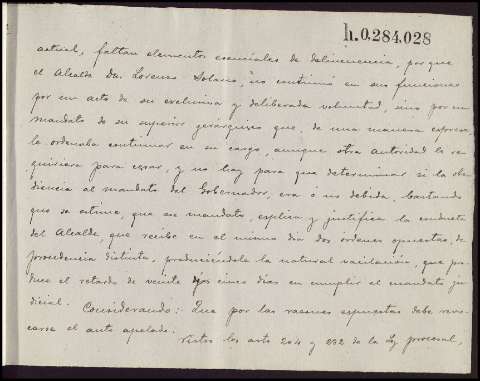 h.0.284.028
actual, faltan elementos esenciales de delincuencia, por que
el Alcalde Dn. Lorenzo Solano, no continuó en sus funciones
por un acto de su exclusiva y deliberada voluntad, sino por un
mandato de su superior gerárquico que, de una manera expresa,
le ordenaba continuar en su cargo, aunque otra autoridad le re-
quiriera para cesar, y no hay para que determinar si la obe-
diencia al mandato del Gobernador, era ó no debida, bastando
que se estime, que ese mandato, esplica y justifica la conducta
del Alcalde, que recibe en el mismo día dos órdenes opuestas, de
procedencia distinta, produciéndole la natural vacilación, que pro-
duce el retardo de veinte y cinco días en cumplir el mandato ju-
dicial. Considerando: Que por las razones espuestas debe revo-
carse el auto apelado.
Vistos los arts 204 y 232 de la Ley procesal,